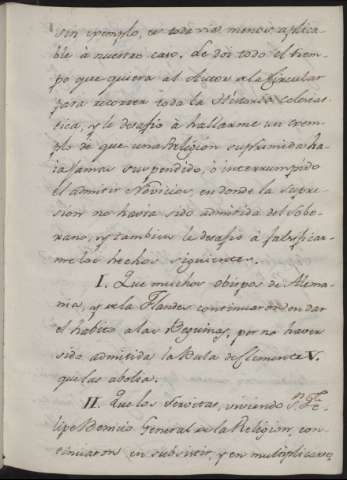 sin exemplo, es todavia menos aplica-
ble à nuestro caso. Le doi todo el tiem-
po que quiera al Autor de la Circular
para recorrer toda la Historia Eclesias-
tica, y le desafio à hallarme un exem-
plo de que una Religion suprimida ha-
ia jamas suspendido, ò interrumpido
el admitir Novicios, en donde la supre-
sion no havia sido admitida del Sobe-
rano, y tambien le desafio à falsificar-
me los hechos siguientes.
I. Que muchos obispos de Alema-
nia, y de la Flandes continuaron en dar
el habito a las Beguinas, por no haver
sido admitida la Bula de Clemente V.
que las abolia.
II. Que los Servitas, viviendo Sn. Fe-
lipe Benicio General de la Religion, con-
tinuaron en subsistir, y en multiplicarse